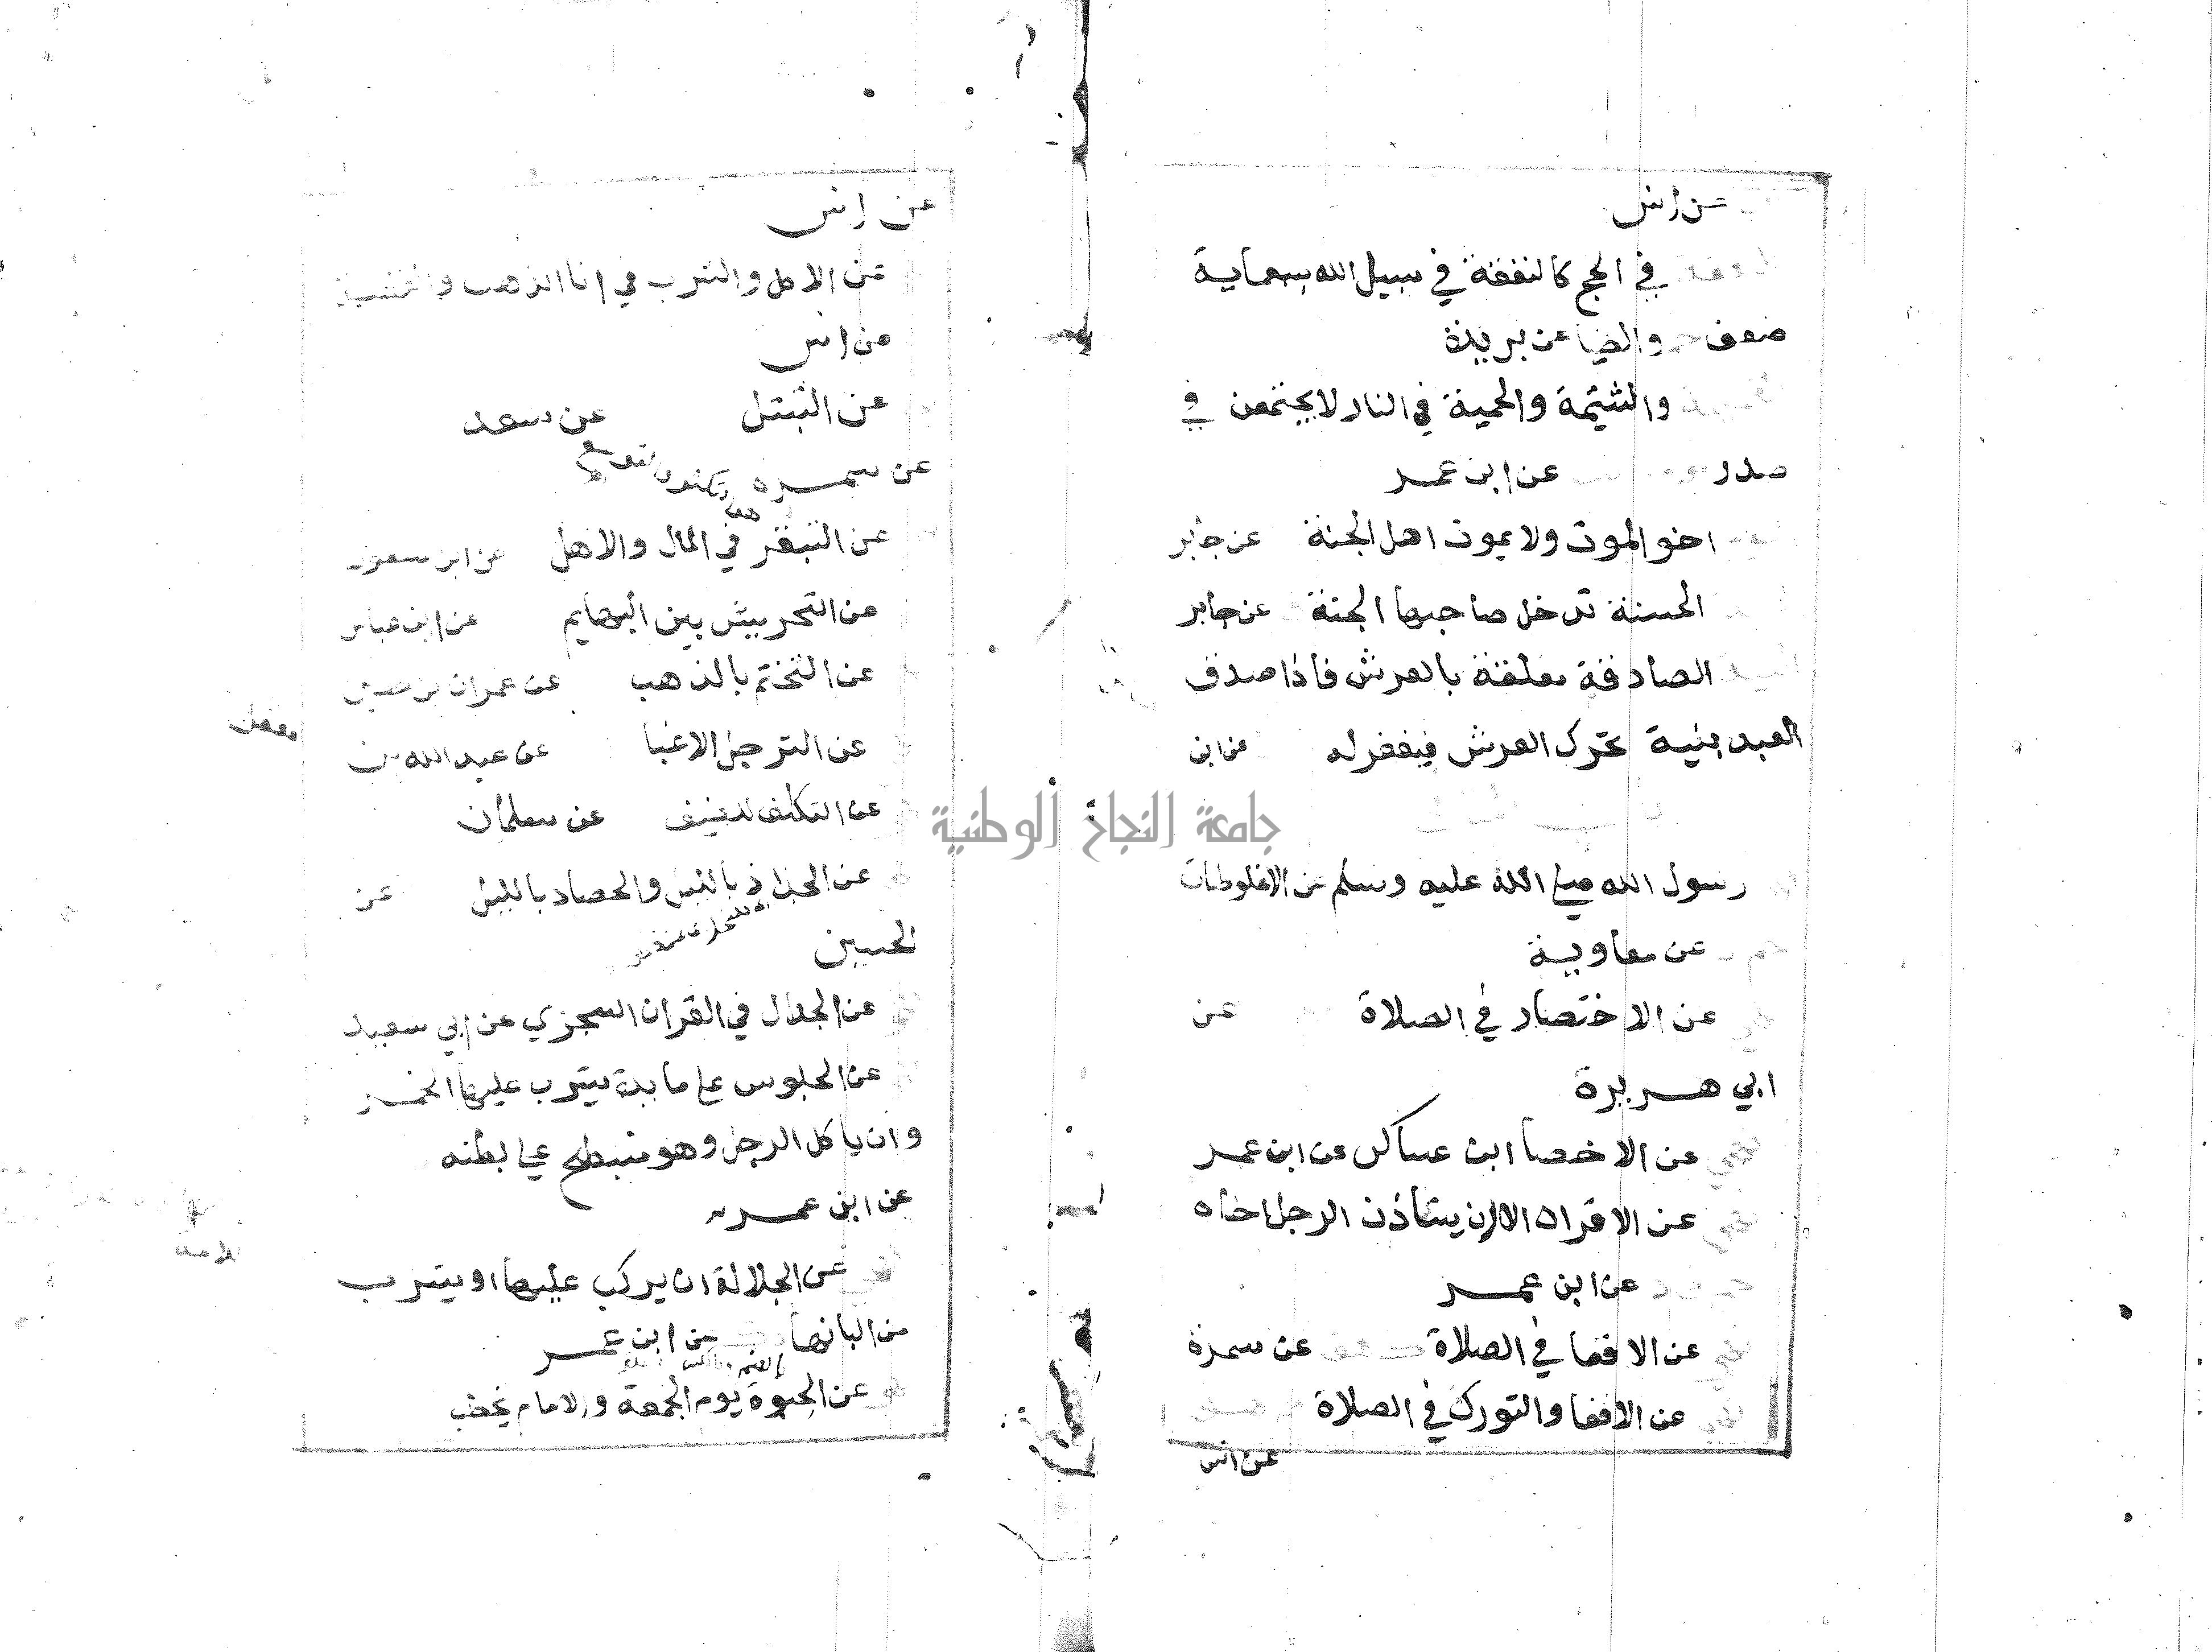 عن انس
في الحج كالنفقة في سبيل الله بسبعماية
ضعف والضيا عن بريدة
والشتيمة والحمية في النار لا يجتمعن في
صدر عن ابن عمر
اخو الموت ولا يموت اهل الجنة عن جابر
الحسنة تدخل صاحبها الجنة عن جابر
الصادقة معلقة بالعرش فاذا صدق
العبد بنية تحرك العرش فيغفر له عن ابن
رسول الله صلى الله عليه وسلم عن الاغلوطات
عن معاوية
عن الاختصار في الصلاة عن
ابي هريرة
عن الاخصا ابن عساكر عن ابن عمر
عن الاقران الا ان يستأذن الرجل اخاه
عن ابن عمر
عن الاقعا في الصلاة عن سمرة
عن الاقعا والتورك في الصلاة
عن انس
عن انس
عن الاكل والشرب في انا الذهب والفضة
عن انس
عن التبتل عن سعد
عن سمرة
عن التبقر في المال والاهل عن ابن مسعود
عن التحريش بين البهايم عن ابن عباس
عن التختم بالذهب عن عمران بن حصين
عن الترجل الا غبا عن عبد الله بن
مغفل
عن التكلف للضيف عن سلمان
عن الجذاذ بالليل والحصاد بالليل عن
الحسين
عن الجدال في القران السجزي عن ابي سعيد
عن الجلوس على مايدة يشرب عليها الخمر
وان ياكل الرجل وهو منبطح على بطنه
عن ابن عمر
عن الجلالة ان يركب عليها او يشرب
من البانها عن ابن عمر
عن الحبوة يوم الجمعة والامام يخطب
جامعة النجاح الوطنية